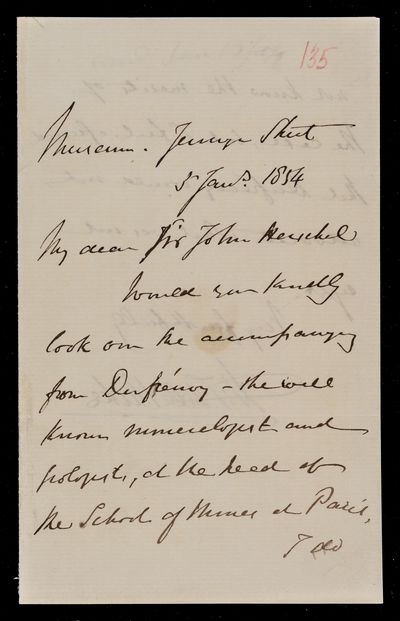 135
Museum. Jermyn Street
5 Jany. 1854
My dear Sir John Herschel
Would you kindly
look over the accompanying
from Dufrénoy – the well
known mineralogist and
geologist, at the head of
the School of Mines at Paris,
I do